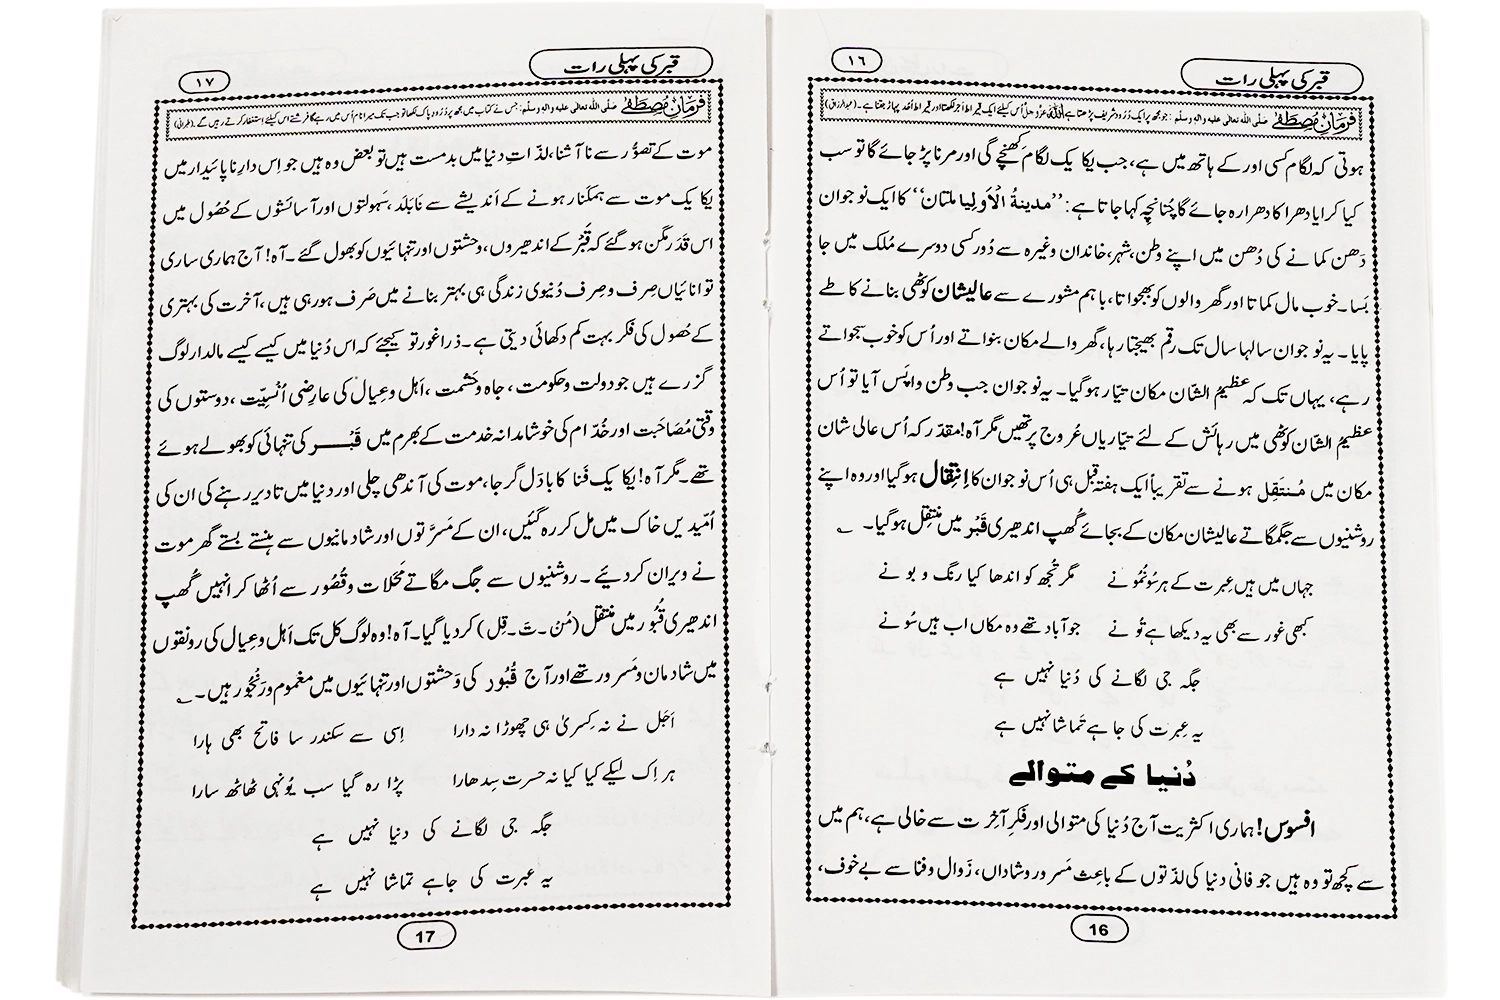 قبر کی پہلی رات
١٦
فرمانِ مصطفٰے صلی اللہ تعالی علیہ والہ وسلم: جو مجھ پر ایک دُرُود شریف پڑھتا ہے اللہ عزوجل اُس کیلئے ایک قیراط اَجر لکھتا اور قیراط اُحُد پہاڑ جتنا ہے۔ (عبدالرزاق)
ہوتی کہ لگام کسی اور کے ہاتھ میں ہے، جب یکا یک لگام کھنچے گی اور مرنا پڑ جائے گا تو سب
کیا کرایا دھرا کا دھرا رہ جائے گا چُنانچِہ کہا جاتا ہے: ’’مدینۃُ الْاَولیا ملتان‘‘ کا ایک نوجوان
دَھن کمانے کی دُھن میں اپنے وطن، شہر، خاندان وغیرہ سے دُور کسی دوسرے مُلک میں جا
بَسا۔ خوب مال کماتا اور گھر والوں کو بھجواتا، باہم مشورے سے عالیشان کوٹھی بنانے کا طے
پایا۔ یہ نوجوان سالہا سال تک رقم بھیجتا رہا، گھر والے مکان بنواتے اور اُس کو خوب سجواتے
رہے، یہاں تک کہ عظیمُ الشّان مکان تیّار ہو گیا۔ یہ نوجوان جب وطن واپَس آیا تو اُس
عظیمُ الشّان کوٹھی میں رہائش کے لئے تیّاریاں عُروج پر تھیں مگر آہ! مقدّر کہ اُس عالی شان
مکان میں مُنتَقِل ہونے سے تقریباً ایک ہفتہ قبل ہی اُس نوجوان کا اِنتِقال ہو گیا اور وہ اپنے
روشنیوں سے جگمگاتے عالیشان مکان کے بجائے گُھپ اندھیری قَبْر میں منتقِل ہو گیا۔
جہاں میں ہیں عِبرت کے ہر سُو نُمُونے مگر تُجھ کو اندھا کیا رنگ و بو نے
کبھی غور سے بھی یہ دیکھا ہے تُو نے جو آباد تھے وہ مکاں اب ہیں سُونے
جگہ جی لگانے کی دُنیا نہیں ہے
یہ عِبرت کی جا ہے تَماشا نہیں ہے
دُنیا کے متوالے
افسوس! ہماری اکثریت آج دُنیا کی متوالی اور فکرِ آخِرت سے خالی ہے، ہم میں
سے کچھ تو وہ ہیں جو فانی دنیا کی لذّتوں کے باعِث مَسرور و شاداں، زَوال و فنا سے بے خوف،
16
قبر کی پہلی رات
١٧
فرمانِ مصطفٰے صلی اللہ تعالی علیہ والہ وسلم: جس نے کتاب میں مجھ پر دُرُود پاک لکھا تو جب تک میرا نام اُس میں رہے گا فرشتے اس کیلئے استغفار کرتے رہیں گے۔ (طبرانی)
موت کے تصوُّر سے نا آشنا، لذّاتِ دنیا میں بدمست ہیں تو بعض وہ ہیں جو اِس دارِ ناپائیدار میں
یکا یک موت سے ہمکَنار ہونے کے اَندیشے سے نابَلَد، سَہولتوں اور آسائشوں کے حُصُول میں
اس قَدَر مگن ہو گئے کہ قَبْر کے اندھیروں، وحشتوں اور تنہائیوں کو بھول گئے۔ آہ! آج ہماری ساری
توانائیاں صِرف و صِرف دُنیوی زندگی ہی بہتر بنانے میں صَرف ہو رہی ہیں، آخرت کی بہتری
کے حُصُول کی فکر بہت کم دکھائی دیتی ہے۔ ذرا غور تو کیجئے کہ اس دُنیا میں کیسے کیسے مالدار لوگ
گزرے ہیں جو دولت و حکومت، جاہ و حَشمت، اَہل و عِیال کی عارِضی اُنْسِیّت، دوستوں کی
وقتی مُصاحَبت اور خُدّام کی خوشامدانہ خدمت کے بھرم میں قَبْر کی تنہائی کو بھولے ہوئے
تھے۔ مگر آہ! یکا یک فَنا کا بادَل گرجا، موت کی آندھی چلی اور دنیا میں تا دیر رہنے کی ان کی
اُمّیدیں خاک میں مل کر رہ گئیں، ان کے مَسَرَّتوں اور شادمانیوں سے ہنستے بستے گھر موت
نے ویران کر دئیے۔ روشنیوں سے جگ مگاتے مَحَلّات و قُصُور سے اُٹھا کر انہیں گُھپ
اندھیری قُبُور میں منتقل (مُنْ۔تَ۔قِل) کر دیا گیا۔ آہ! وہ لوگ کل تک اَہل و عِیال کی رونقوں
میں شادمان و مَسرور تھے اور آج قُبُور کی وَحشتوں اور تنہائیوں میں مغموم و رَنجُور ہیں۔
اَجَل نے نہ کِسریٰ ہی چھوڑا نہ دارا اِسی سے سکندر سا فاتح بھی ہارا
ہر اِک لیکے کیا کیا نہ حسرت سِدھارا پڑا رہ گیا سب یُونہی ٹھاٹھ سارا
جگہ جی لگانے کی دنیا نہیں ہے
یہ عبرت کی جا ہے تماشا نہیں ہے
17